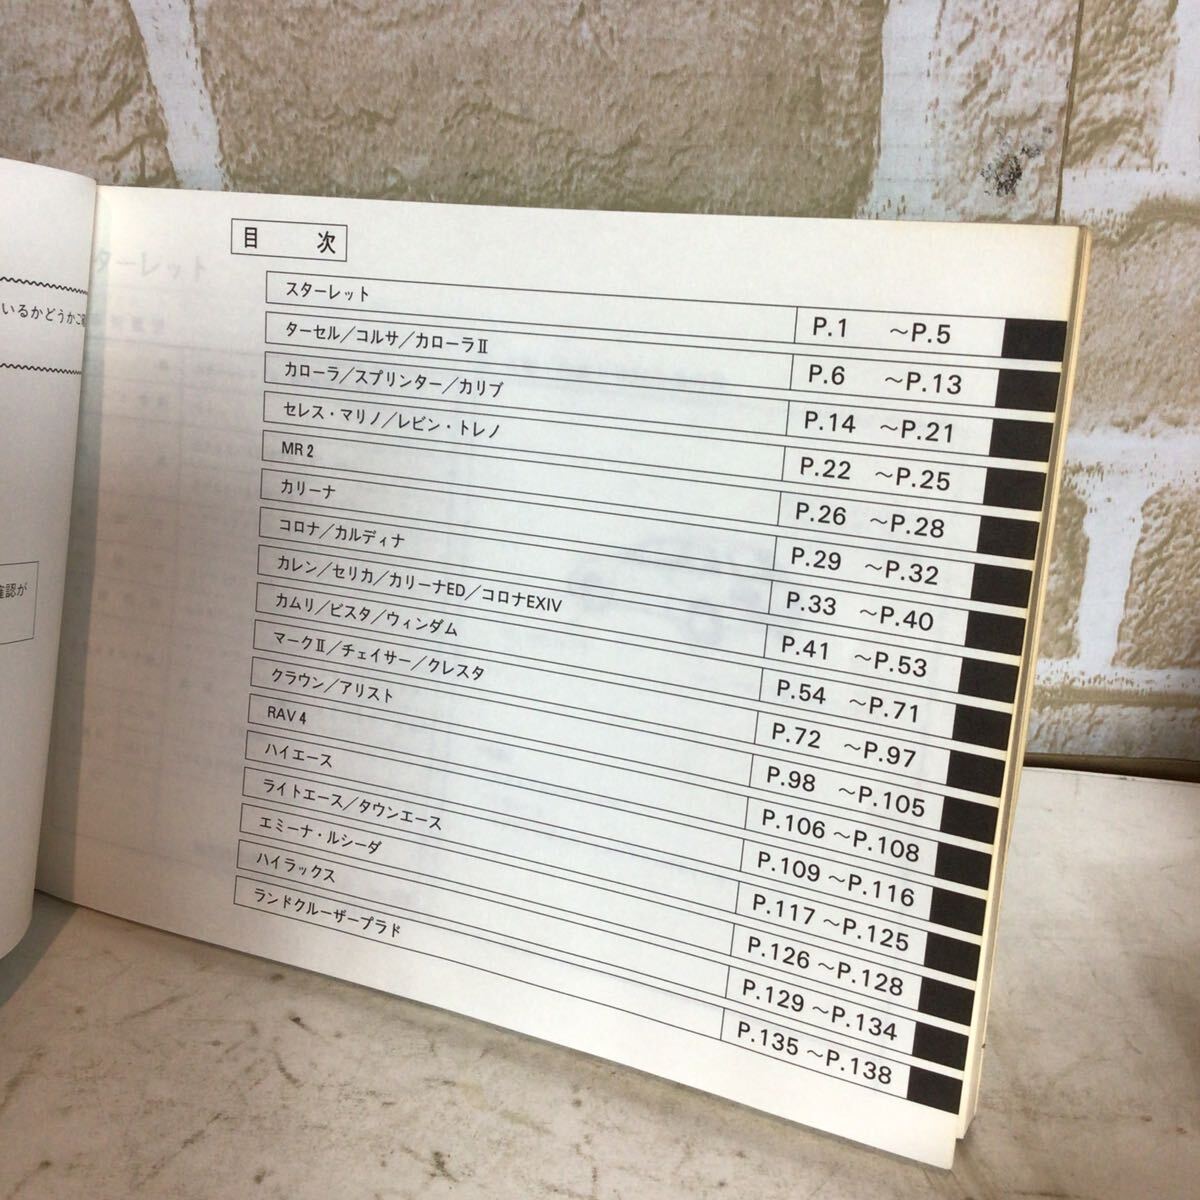 目 次
スターレット P.1 ～P.5
ターセル／コルサ／カローラⅡ P.6 ～P.13
カローラ／スプリンター／カリブ P.14 ～P.21
セレス・マリノ／レビン・トレノ P.22 ～P.25
MR2 P.26 ～P.28
カリーナ P.29 ～P.32
コロナ／カルディナ P.33 ～P.40
カレン／セリカ／カリーナED／コロナEXIV P.41 ～P.53
カムリ／ビスタ／ウィンダム P.54 ～P.71
マークⅡ／チェイサー／クレスタ P.72 ～P.97
クラウン／アリスト P.98 ～P.105
RAV4 P.106～P.108
ハイエース P.109～P.116
ライトエース／タウンエース P.117～P.125
エミーナ・ルシーダ P.126～P.128
ハイラックス P.129～P.134
ランドクルーザープラド P.135～P.138
いるかどうかご
認が